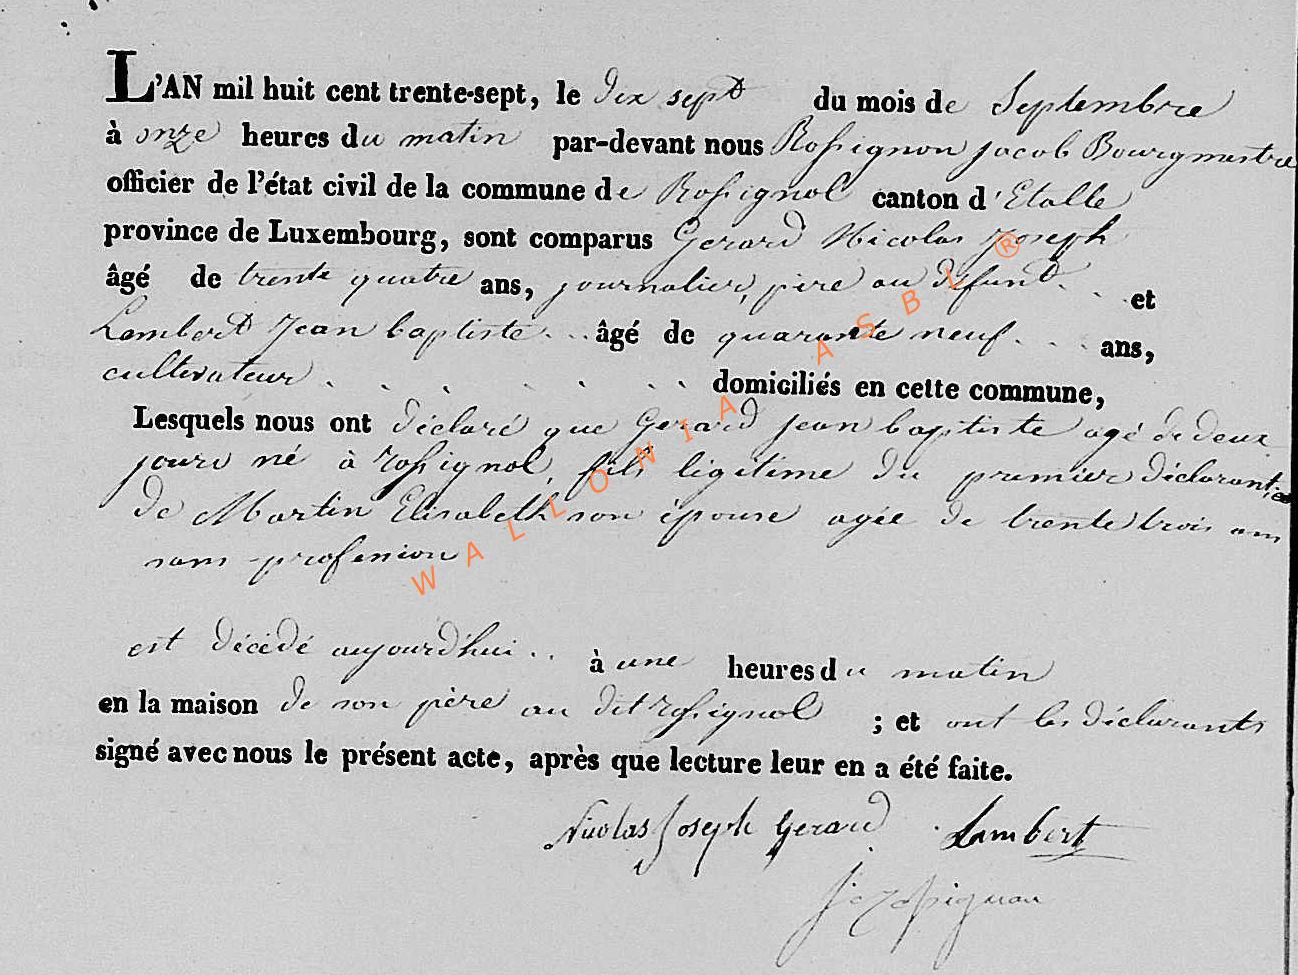 L'AN mil huit cent trente-sept, le dix sept du mois de Septembre
à onze heures du matin par-devant nous Rossignon Jacob Bourgmestre
officier de l'état civil de la commune de Rossignol canton d'Etalle
province de Luxembourg, sont comparus Gerard Nicolas Joseph
âgé de trente quatre ans, journalier, père au défunt et
Lambert Jean baptiste âgé de quarante neuf ans,
cultivateur domiciliés en cette commune,
Lesquels nous ont déclaré que Gerard Jean baptiste agé de deux
jours né à Rossignol, fils légitime du premier déclarant, et
de Martin Elisabeth son épouse agée de trente trois ans
sans profession
est décédé aujourd'hui à une heures du matin
en la maison de son père au dit Rossignol ; et ont les déclarants
signé avec nous le présent acte, après que lecture leur en a été faite.
Nicolas Joseph Gerard Lambert
J Rossignon
WALLONIA ASBL ®